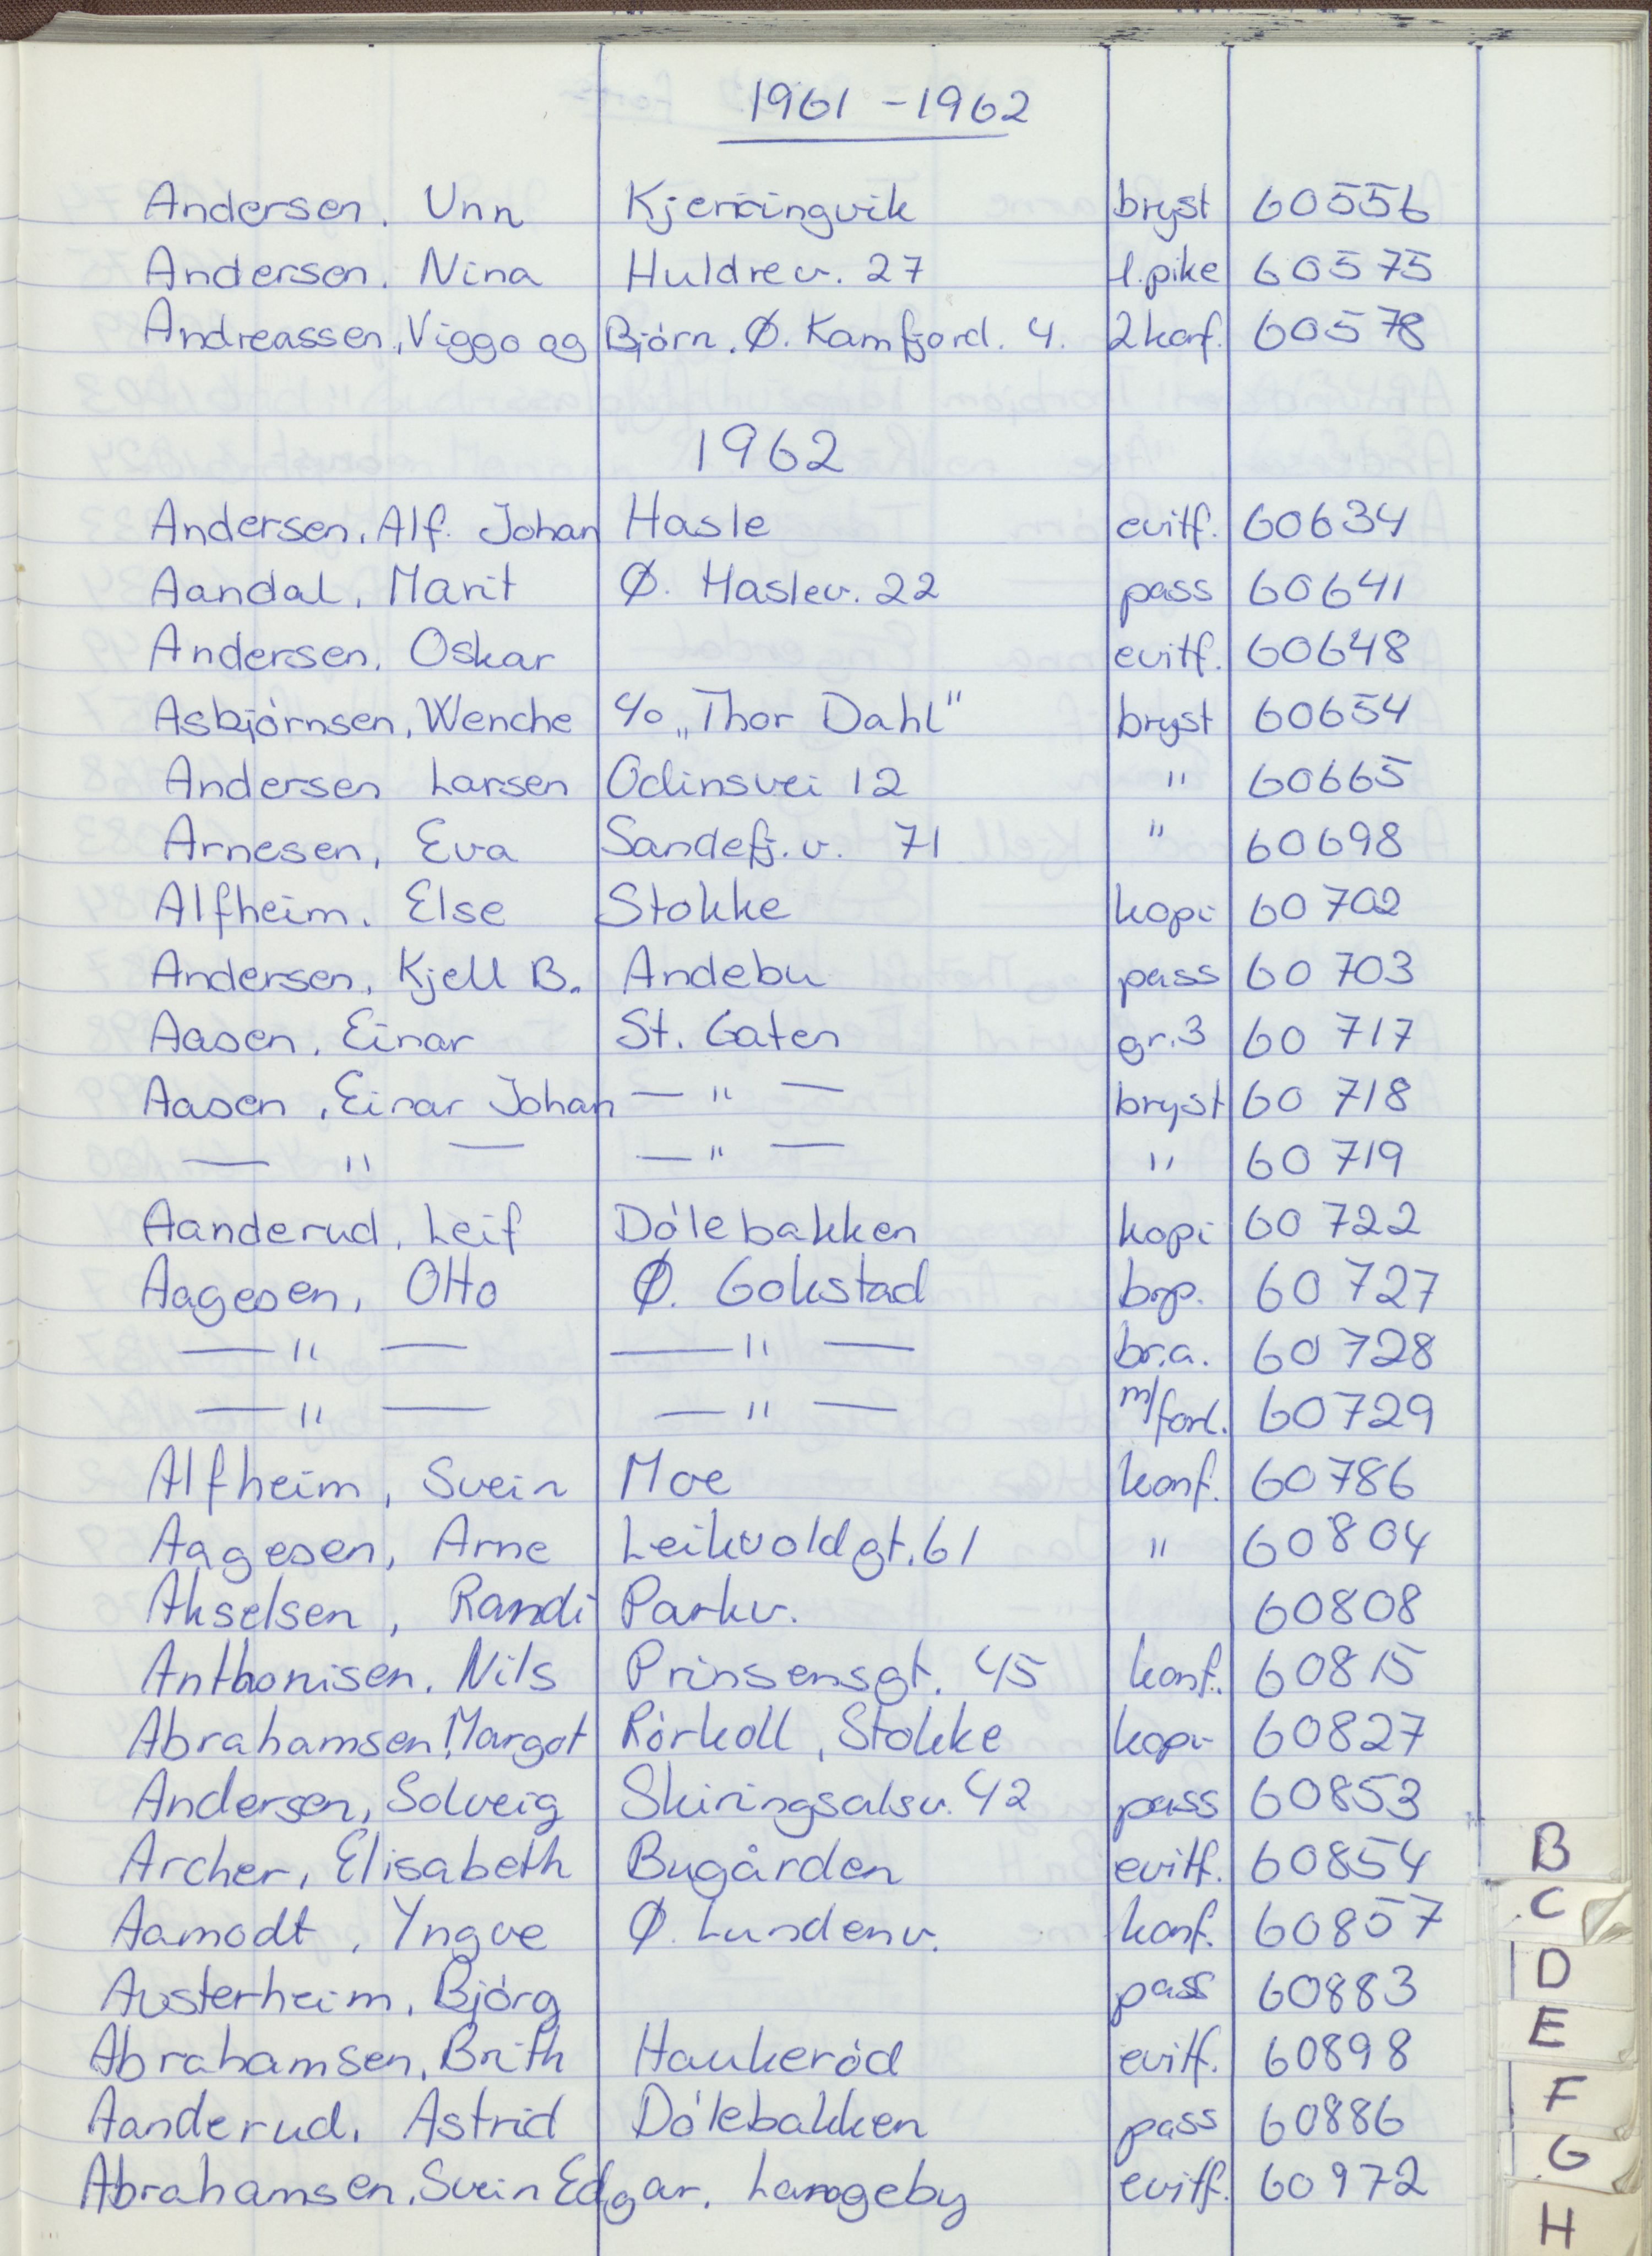 1961 - 1962
Andersen. Unn Kjerringvik bryst 60556
Andersen. Nina Huldrev. 27 l.pike 60575
Andreassen, Viggo og Björn. Ø. Kamfjord. 4. 2 konf. 60578
1962
Andersen, Alf. Johan Hasle evitf. 60634
Aandal, Marit Ø. Haslev. 22 pass 60641
Andersen, Oskar evitf. 60648
Asbjörnsen, Wenche c/o „Thor Dahl" bryst 60654
Andersen Larsen Odinsvei 12 " 60665
Arnesen, Eva Sandefj. v. 71 " 60698
Alfheim. Else Stokke kopi 60702
Andersen, Kjell B. Andebu pass 60703
Aasen, Einar St. Gaten gr.3 60 717
Aasen, Einar Johan — " — bryst 60 718
— " — — " — " 60 719
Aanderud, Leif Dölebakken kopi 60 722
Aagesen, Otto Ø. Gokstad brp. 60 727
— " — — " — br.a. 60 728
— " — — " — m/forl. 60729
Alfheim, Svein Moe konf. 60786
Aagesen, Arne Leikvoldgt. 61 " 60804
Akselsen, Randi Parkv. 60808
Anthonisen. Nils Prinsensgt. 45 konf. 60815
Abrahamsen, Margot Rörkoll, Stokke kopi 60827
Andersen, Solveig Skiringsalsv. 42 pass 60853
Archer, Elisabeth Bugården evitf. 60854
Aamodt, Yngve Ø. Lundenv. konf. 60857
Austerheim, Björg pass 60883
Abrahamsen, Brith Haukeröd evitf. 60898
Aanderud, Astrid Dölebakken pass 60886
Abrahamsen, Svein Edgar. Langeby evitf. 60972
B
C
D
E
F
G
H